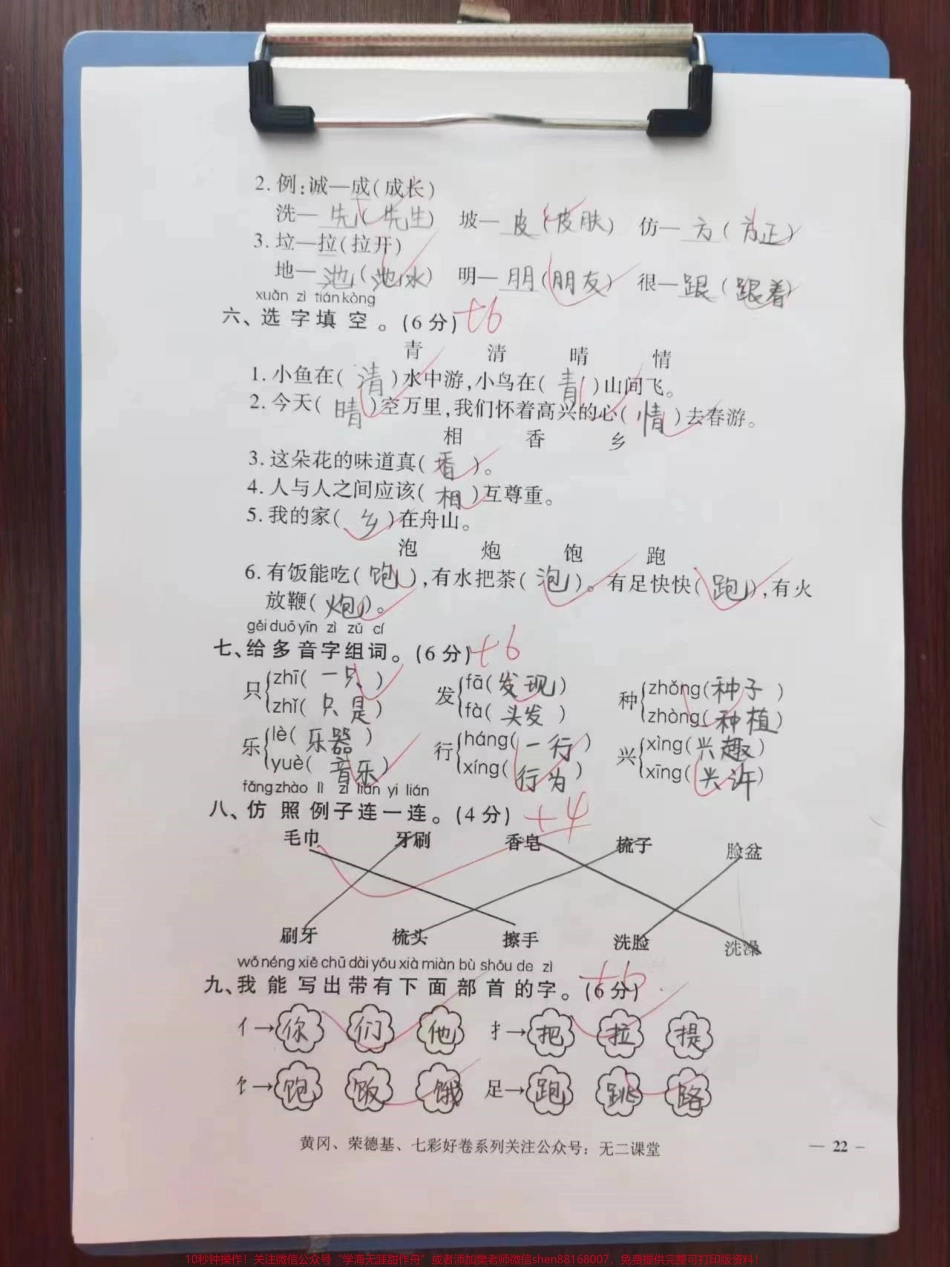 2.例:诚—成(成长)
洗—先(先生) 坡—皮(皮肤) 仿—方(方正)
3.垃—拉(拉开)
地—池(池水) 明—朋(朋友) 很—跟(跟着)
xuǎn zì tián kòng
六、选字填空。(6分) +6
青 清 晴 情
1.小鱼在(清)水中游,小鸟在(青)山间飞。
2.今天(晴)空万里,我们怀着高兴的心(情)去春游。
相 香 乡
3.这朵花的味道真(香)。
4.人与人之间应该(相)互尊重。
5.我的家(乡)在舟山。
泡 炮 饱 跑
6.有饭能吃(饱),有水把茶(泡)。有足快快(跑),有火
放鞭(炮)。
gěi duō yīn zì zǔ cí
七、给多音字组词。(6分) +6
只 zhī(一只) 发 fā(发现) 种 zhǒng(种子)
zhǐ(只是) fà(头发) zhòng(种植)
乐 lè(乐器) 行 háng(一行) 兴 xìng(兴趣)
yuè(音乐) xíng(行为) xīng(兴许)
fǎng zhào lì zǐ lián yi lián
八、仿照例子连一连。(4分) +4
毛巾 牙刷 香皂 梳子 脸盆
刷牙 梳头 擦手 洗脸 洗澡
wǒ néng xiě chū dài yǒu xià miàn bù shǒu de zì
九、我能写出带有下面部首的字。(6分) +6
亻→你 们 他 扌→把 拉 提
饣→饱 饭 饿 足→跑 跳 路
黄冈、荣德基、七彩好卷系列关注公众号:无二课堂
— 22 –
10秒钟操作!关注微信公众号“学海无涯甜作舟”或者添加樊老师微信shen88168007,免费提供完整可打印版资料!